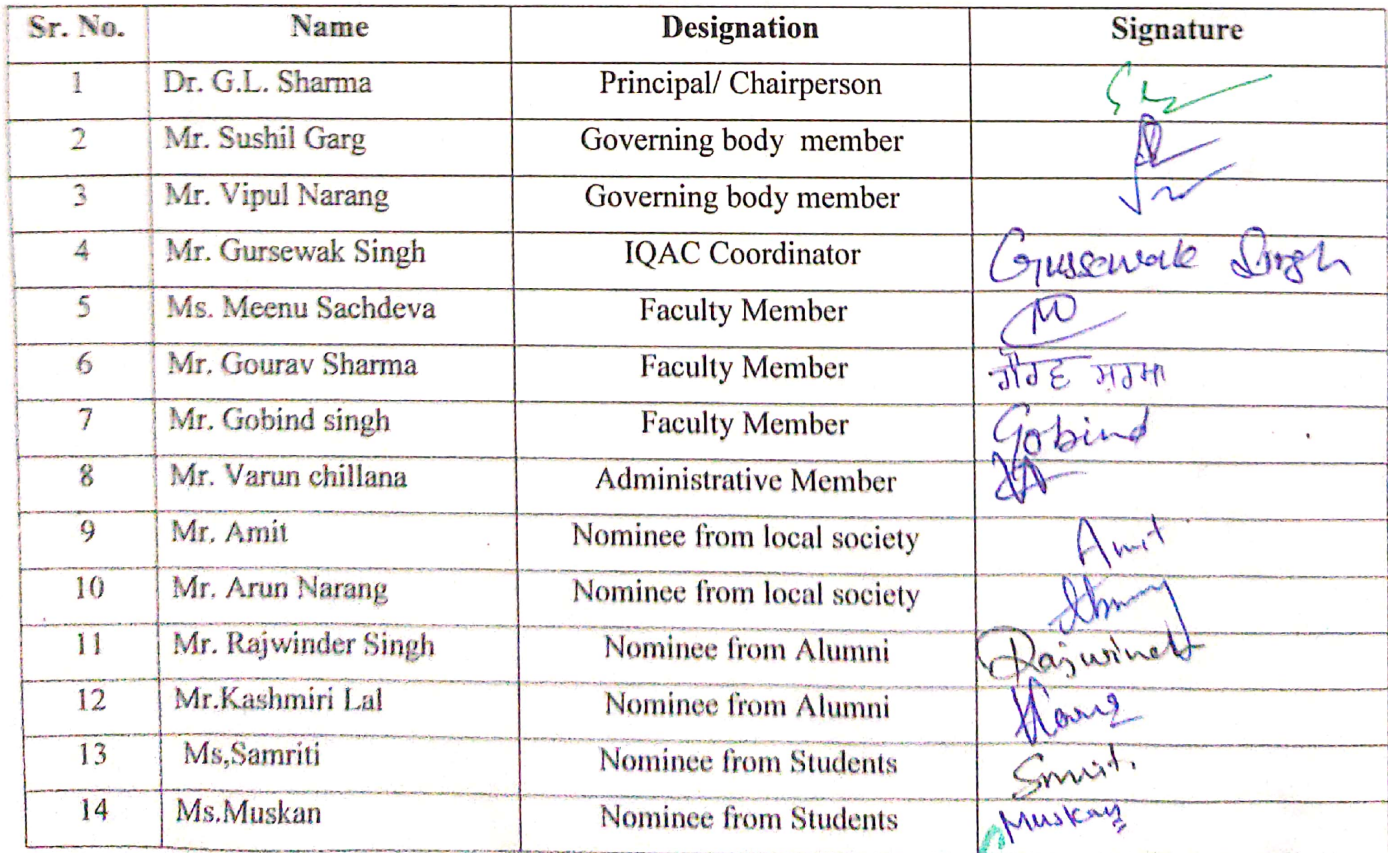 Sr. No. Name Designation Signature
1 Dr. G.L. Sharma Principal/ Chairperson
2 Mr. Sushil Garg Governing body member
3 Mr. Vipul Narang Governing body member
4 Mr. Gursewak Singh IQAC Coordinator Gursewak Singh
5 Ms. Meenu Sachdeva Faculty Member
6 Mr. Gourav Sharma Faculty Member ਗੌਰਵ ਸ਼ਰਮਾ
7 Mr. Gobind singh Faculty Member Gobind
8 Mr. Varun chillana Administrative Member
9 Mr. Amit Nominee from local society Amit
10 Mr. Arun Narang Nominee from local society
11 Mr. Rajwinder Singh Nominee from Alumni
12 Mr.Kashmiri Lal Nominee from Alumni
13 Ms,Samriti Nominee from Students
14 Ms.Muskan Nominee from Students Muskan